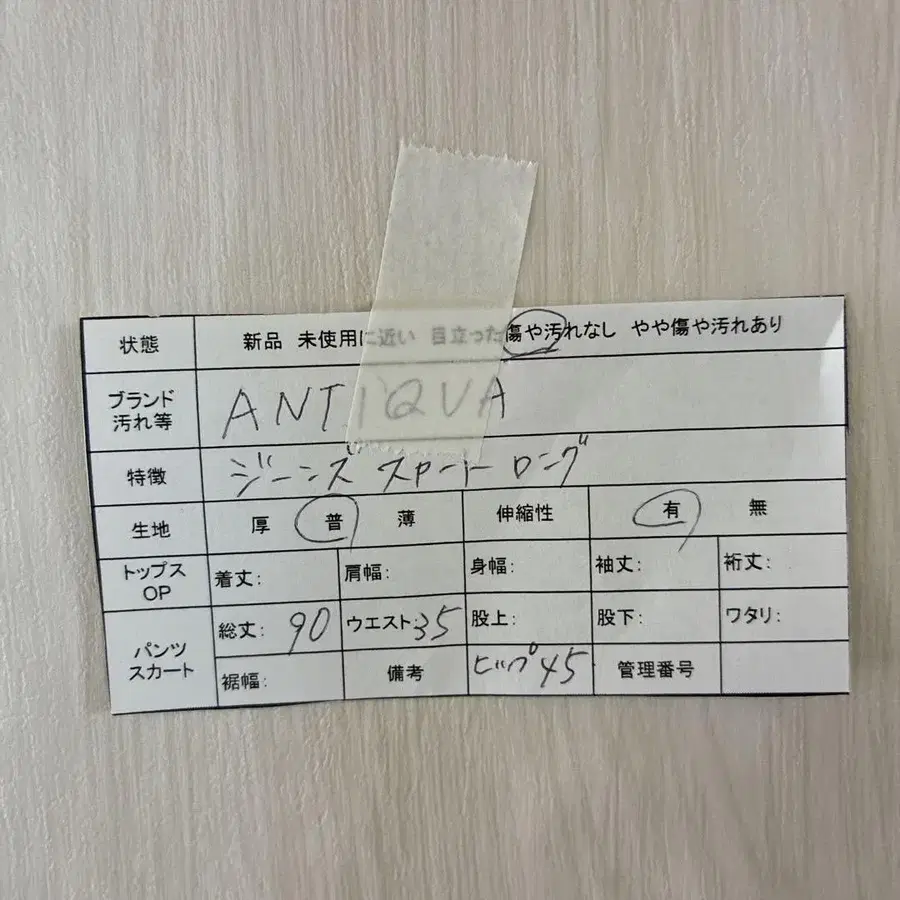 状態 新品 未使用に近い 目立った傷や汚れなし やや傷や汚れあり
ブランド 汚れ等 ANTIQUA
特徴 ジーンズ スカート ロング
生地 厚 普 薄 伸縮性 有 無
トップス OP 着丈: 肩幅: 身幅: 袖丈: 裄丈:
パンツ スカート 総丈: 90 ウエスト:35 股上: 股下: ワタリ:
裾幅: 備考 ヒップ45 管理番号